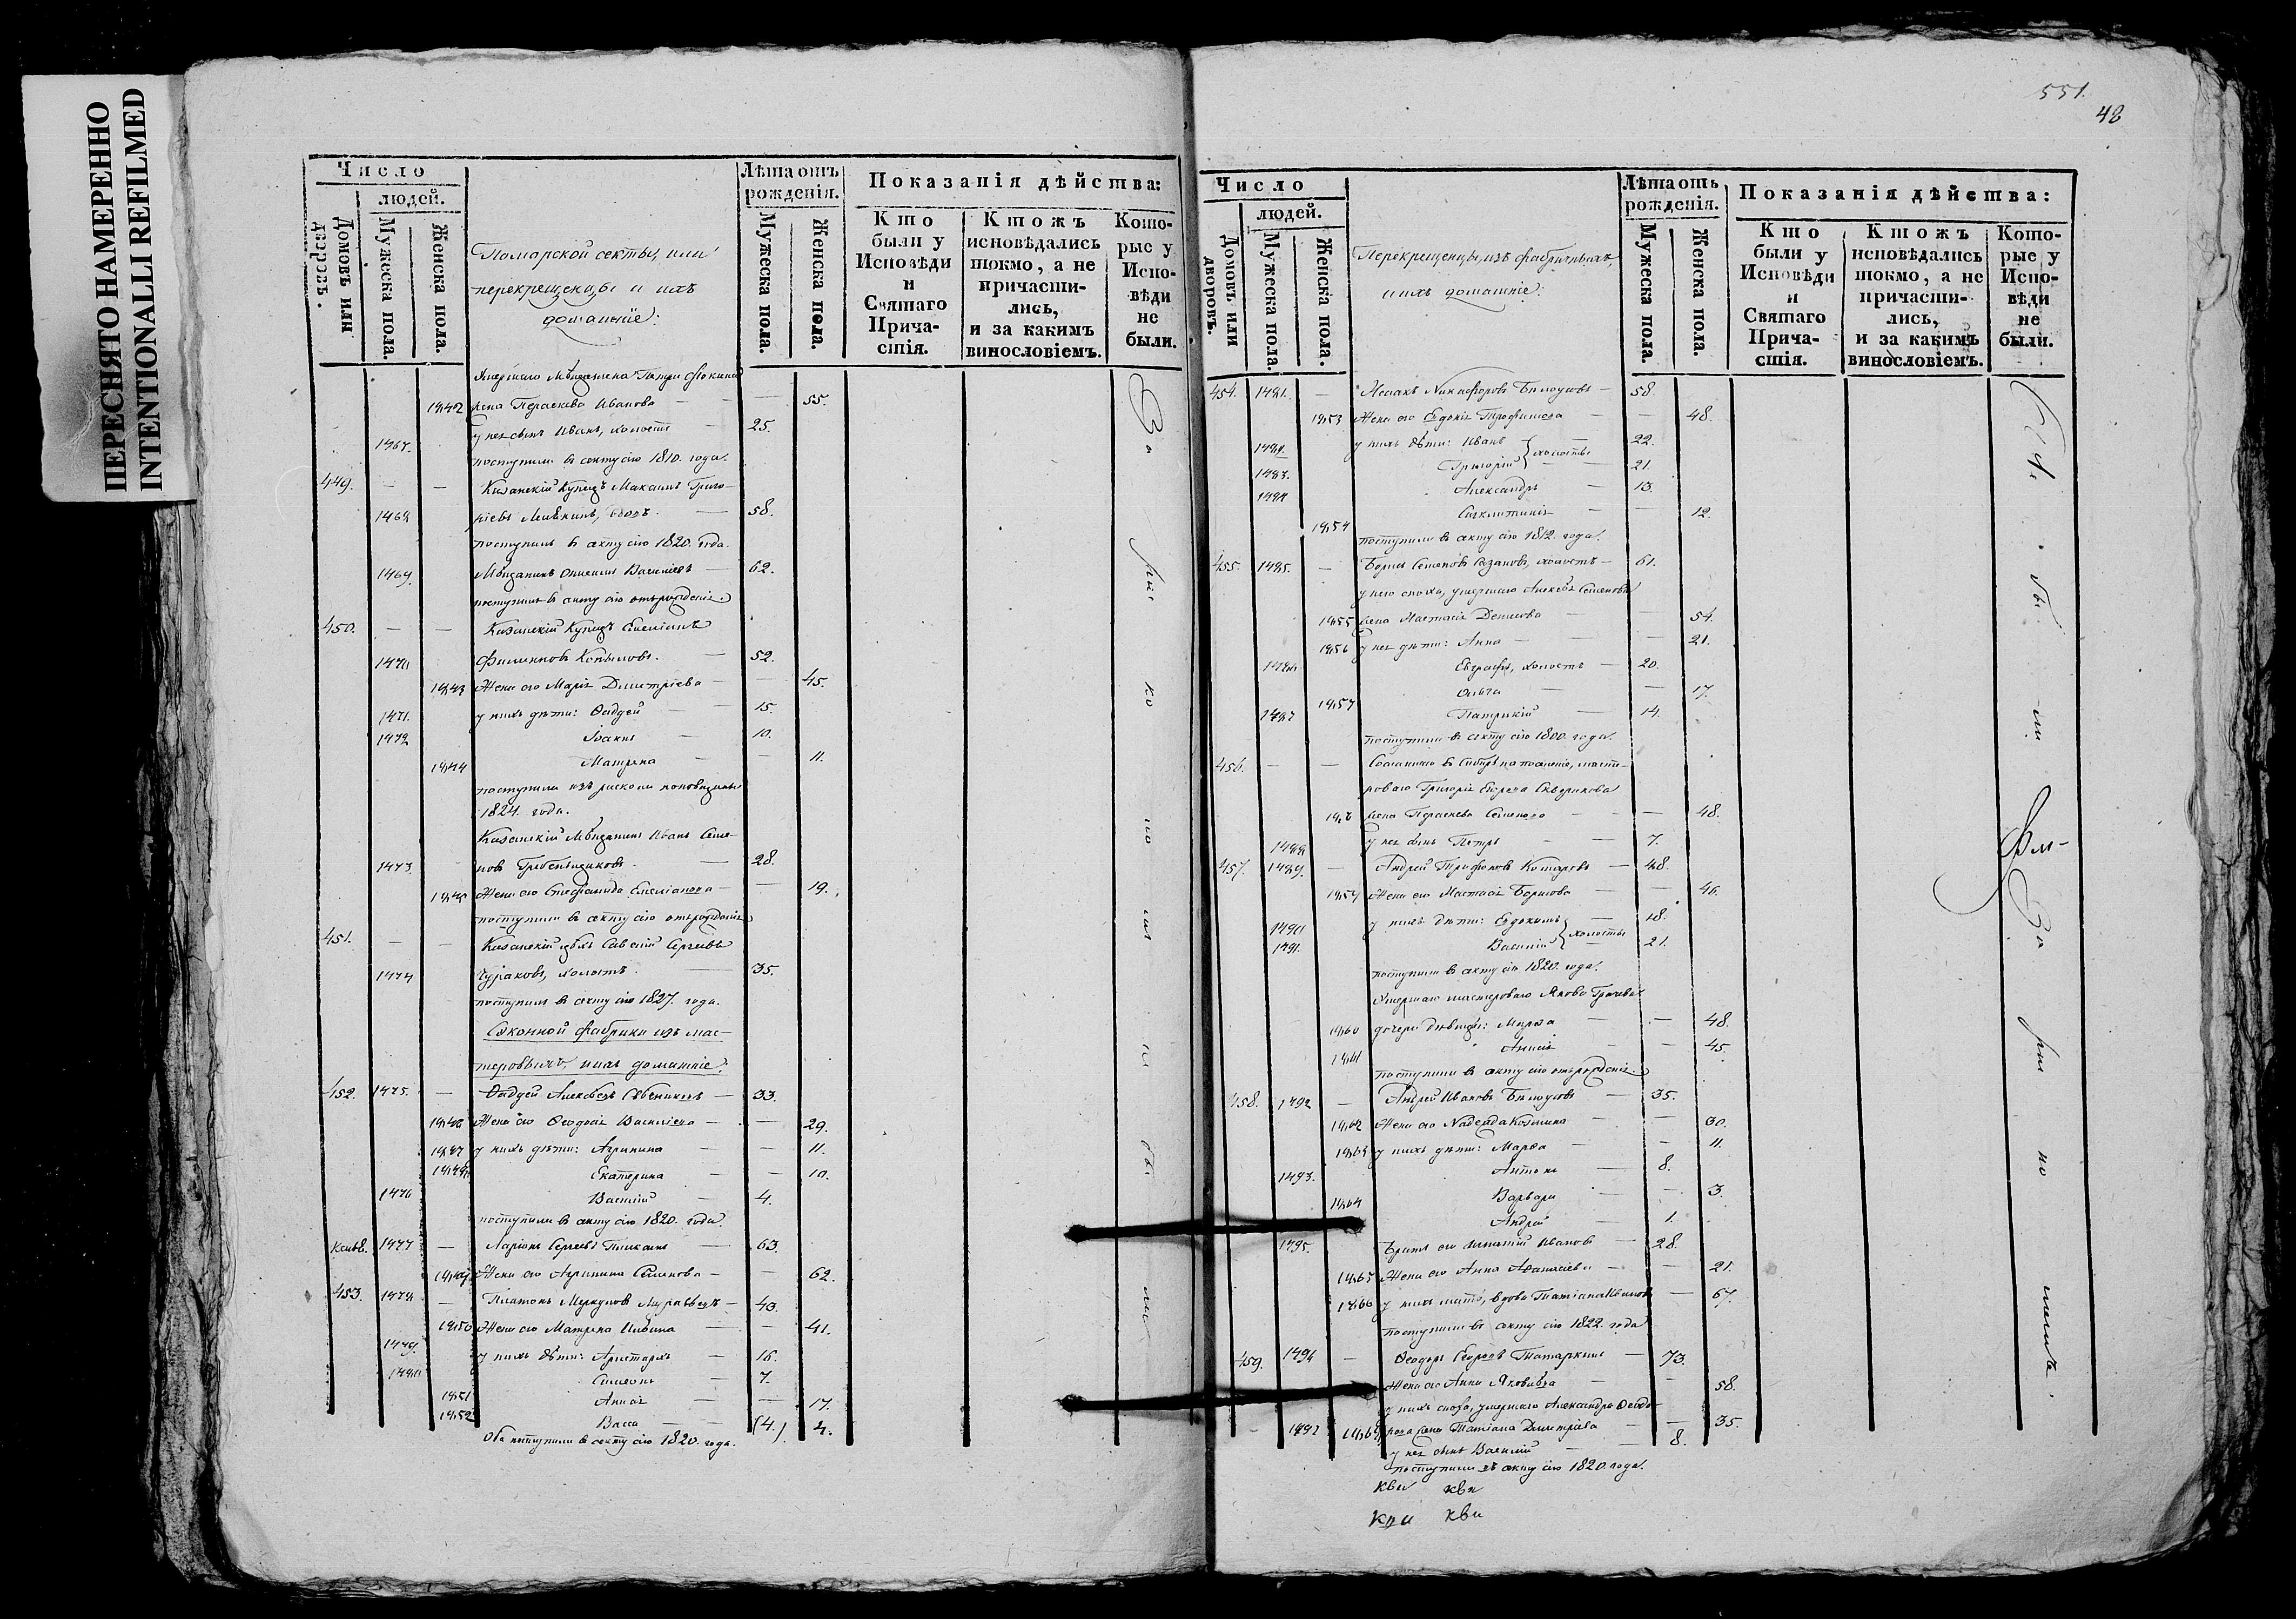 ПЕРЕСНЯТО НАМЕРЕННО
INTENTIONALLI REFILMED
Число
людей.
Домовъ или дворовъ.
Мужеска пола.
Женска пола.
Поморской секты, или
перекрещенцы и ихъ
домашніе:
Лѣта отъ рожденія.
Мужеска пола.
Женска пола.
Показанія дѣйства:
Кто были у Исповѣди и Святаго Причастія.
Ктожъ исповѣдались токмо, а не причастились, и за какимъ винословіемъ.
Которые у Исповѣди не были.
Умершаго Мѣщанина Петра Фокина
1442 жена Параскева Иванова — — 55.
1467. у нея сынъ Иванъ, холостъ — 25.
поступили въ секту сію 1810. года.
449. — — Казанскій Купецъ Максимъ Григо-
1468 рьевъ, вдовъ. — 58.
поступилъ въ секту сію 1820. года.
1469. Мѣщанинъ Василіевъ — 62.
поступилъ въ секту сію отъ рожденія.
450. — — Казанскій Купецъ Емеліанъ
1470 Филипповъ Копыловъ. — 52.
1443 Жена его Марія Димитріева — — 45.
1471. у нихъ дѣти: Фадей — 15.
1472 Іоакимъ — 10.
1444 Матрена — — 11.
поступили изъ раскола поповщины
1824. года.
Казанскій Мѣщанинъ Иванъ Семе-
1473 новъ Гребенщиковъ. — 28.
1445 Жена его Емеліанова — — 19.
поступили въ секту сію отъ рожденія
451. — — Казанскій Сергѣевъ
1474 Чураковъ, холостъ. — 35.
поступилъ въ секту сію 1827. года.
Суконной фабрики изъ мас-
теровыхъ, и ихъ домашніе:
452. 1475. — Фадей Алексѣевъ — 33.
1446 Жена его Феодосія Василіева — — 29.
1447 у нихъ дѣти: Агрипина — — 11.
1448 Екатерина — — 10.
1476 Василій — 4.
поступили въ секту сію 1820. года.
1477 — Ларіонъ Сергѣевъ — 63.
1449 Жена его Агрипина Семенова — — 62.
453. 1478 — Платонъ Меркуловъ — 43.
1450 Жена его Матрена — — 41.
1479. у нихъ дѣти: Аристархъ — 16.
1480 Симеонъ — 7.
1451 Анисія — — 17.
1452 Васса — (4.) 4.
Оба поступили въ секту сію 1820. года.
За
рас
ко
ло
мъ
не
бы
ли
551.
48
Число
людей.
Домовъ или дворовъ.
Мужеска пола.
Женска пола.
Перекрещенцы, изъ фабричныхъ,
и ихъ домашніе:
Лѣта отъ рожденія.
Мужеска пола.
Женска пола.
Показанія дѣйства:
Кто были у Исповѣди и Святаго Причастія.
Ктожъ исповѣдались токмо, а не причастились, и за какимъ винословіемъ.
Которые у Исповѣди не были.
454. 1481. — Исаакъ Никифоровъ Бѣлоусовъ — 58.
1453 Жена его Евдокія Трофимова — — 48.
1482. у нихъ дѣти: Иванъ } холосты 22.
1483. Григорій } — 21.
1484 Александръ — 13.
1454 Секлитинія — — 12.
поступили въ секту сію 1812. года.
455. 1485. — Борисъ Семеновъ Казаковъ, холостъ — 61.
у него сноха, умершаго Алексѣя Семенова
1455 жена Настасія Денисова — — 54.
1456 у нея дѣти: Анна — — 21.
1486 Евграфъ, холостъ — 20.
1457 Ольга — — 17.
1487 Патрикій — 14.
поступили въ секту сію 1800. года.
456. — — въ Сибирь на поселеніе, масте-
роваго Григорія
1458 жена Параскева Семенова — — 48.
1488 у нея сынъ Петръ — 7.
457. 1489. — Андрей Трифоновъ Комаровъ — 48.
1459 Жена его Настасія Борисова — — 46.
1490 у нихъ дѣти: Евдокимъ } — 18.
1491. Василій } холосты 21.
поступили въ секту сію 1820. года.
Умершаго мастероваго Якова Грачева
1460 дочери дѣвицы: Марѳа — — 48.
1461 Анисія — — 45.
поступили въ секту сію отъ рожденія.
458. 1492 — Андрей Ивановъ Бѣлоусовъ — 35.
1462 Жена его Надежда Козмина — — 30.
1463 у нихъ дѣти: Марѳа — — 11.
1493. Антонъ — 8.
1464 Варвара — — 3.
Андрей — 1.
1495. Братъ его Игнатій Ивановъ — 28.
1465 Жена его Анна Аѳанасіева — — 21.
1466 у нихъ мать, вдова Татіана Иванова — 67.
поступили въ секту сію 1822. года
459. 1496 — Феодоръ Егоровъ Татаркинъ — 73.
Жена его Анна Яковлева — — 58.
у нихъ сноха, умершаго Александра Феодо-
рова жена Татіана Димитріева — — 35.
1497 у нея сынъ Василій — 8.
поступили въ секту сію 1820. года.